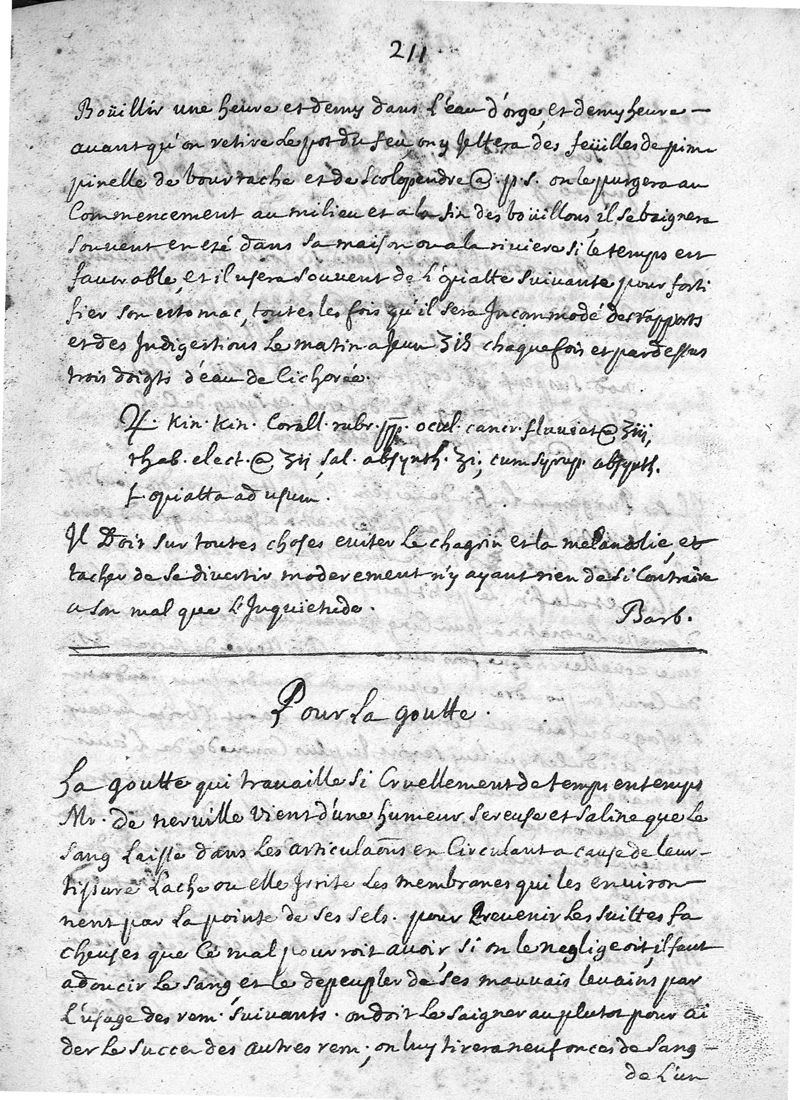 211.
Boüillir une heure et demy dans L'eau d'orge, et demy heure –
avant qu'on retire Le pot du feu, on y Jettera des feüilles de pim
pinelle de bourrache et de Scolopendre @ p.s. on le purgera au
Commencement au milieu et a la fin des boüillons, il se baignera
Souvent en eté dans sa maison ou a la riviere si le temps est
favorable, et il usera Souvent de L'opiatte Suivante pour forti
fier son estomac, toutes les fois qu'il sera Jncommodé des rapports
et des Jndigestions Le matin a Jeun ʒiß chaque fois et par dessus
trois doigts d'eau de Cichorée.
♃ Kin. Kin. Corall. rubr. pp. ocul. cancr. fluviat @ ʒiij,
rhab. elect. @ ʒij, sal. absynth. ʒi; cum syrup. absynth.
f. opiatta ad usum.
Jl Doit sur toutes choses eviter Le chagrin et la melancolie, et
tacher de se divertir moderement n'y ayant rien de si Contraire
a son mal que L'Jnquietude. Barb.
Pour La goutte.
La goutte qui travaille si Cruellement de temps en temps
Mr. de nerville vient d'une humeur Sereuse et Saline que Le
Sang Laisse dans Les articulaõns en Circulant a cause de leur –
tissure Lache ou elle Jrrite Les membranes qui les environ
nent par La pointe de ses sels. pour Prevenir Les Suittes fa
cheuses que Ce mal pourroit avoir, si on le negligeoit, il faut
adoucir Le Sang et le depeupler de ses mauvais levains par
L'usage des rem. Suivants. on doit Le saigner au plutot pour ai
der Le Succez des autres rem; on luy tirera neuf onces de Sang –
de L'un